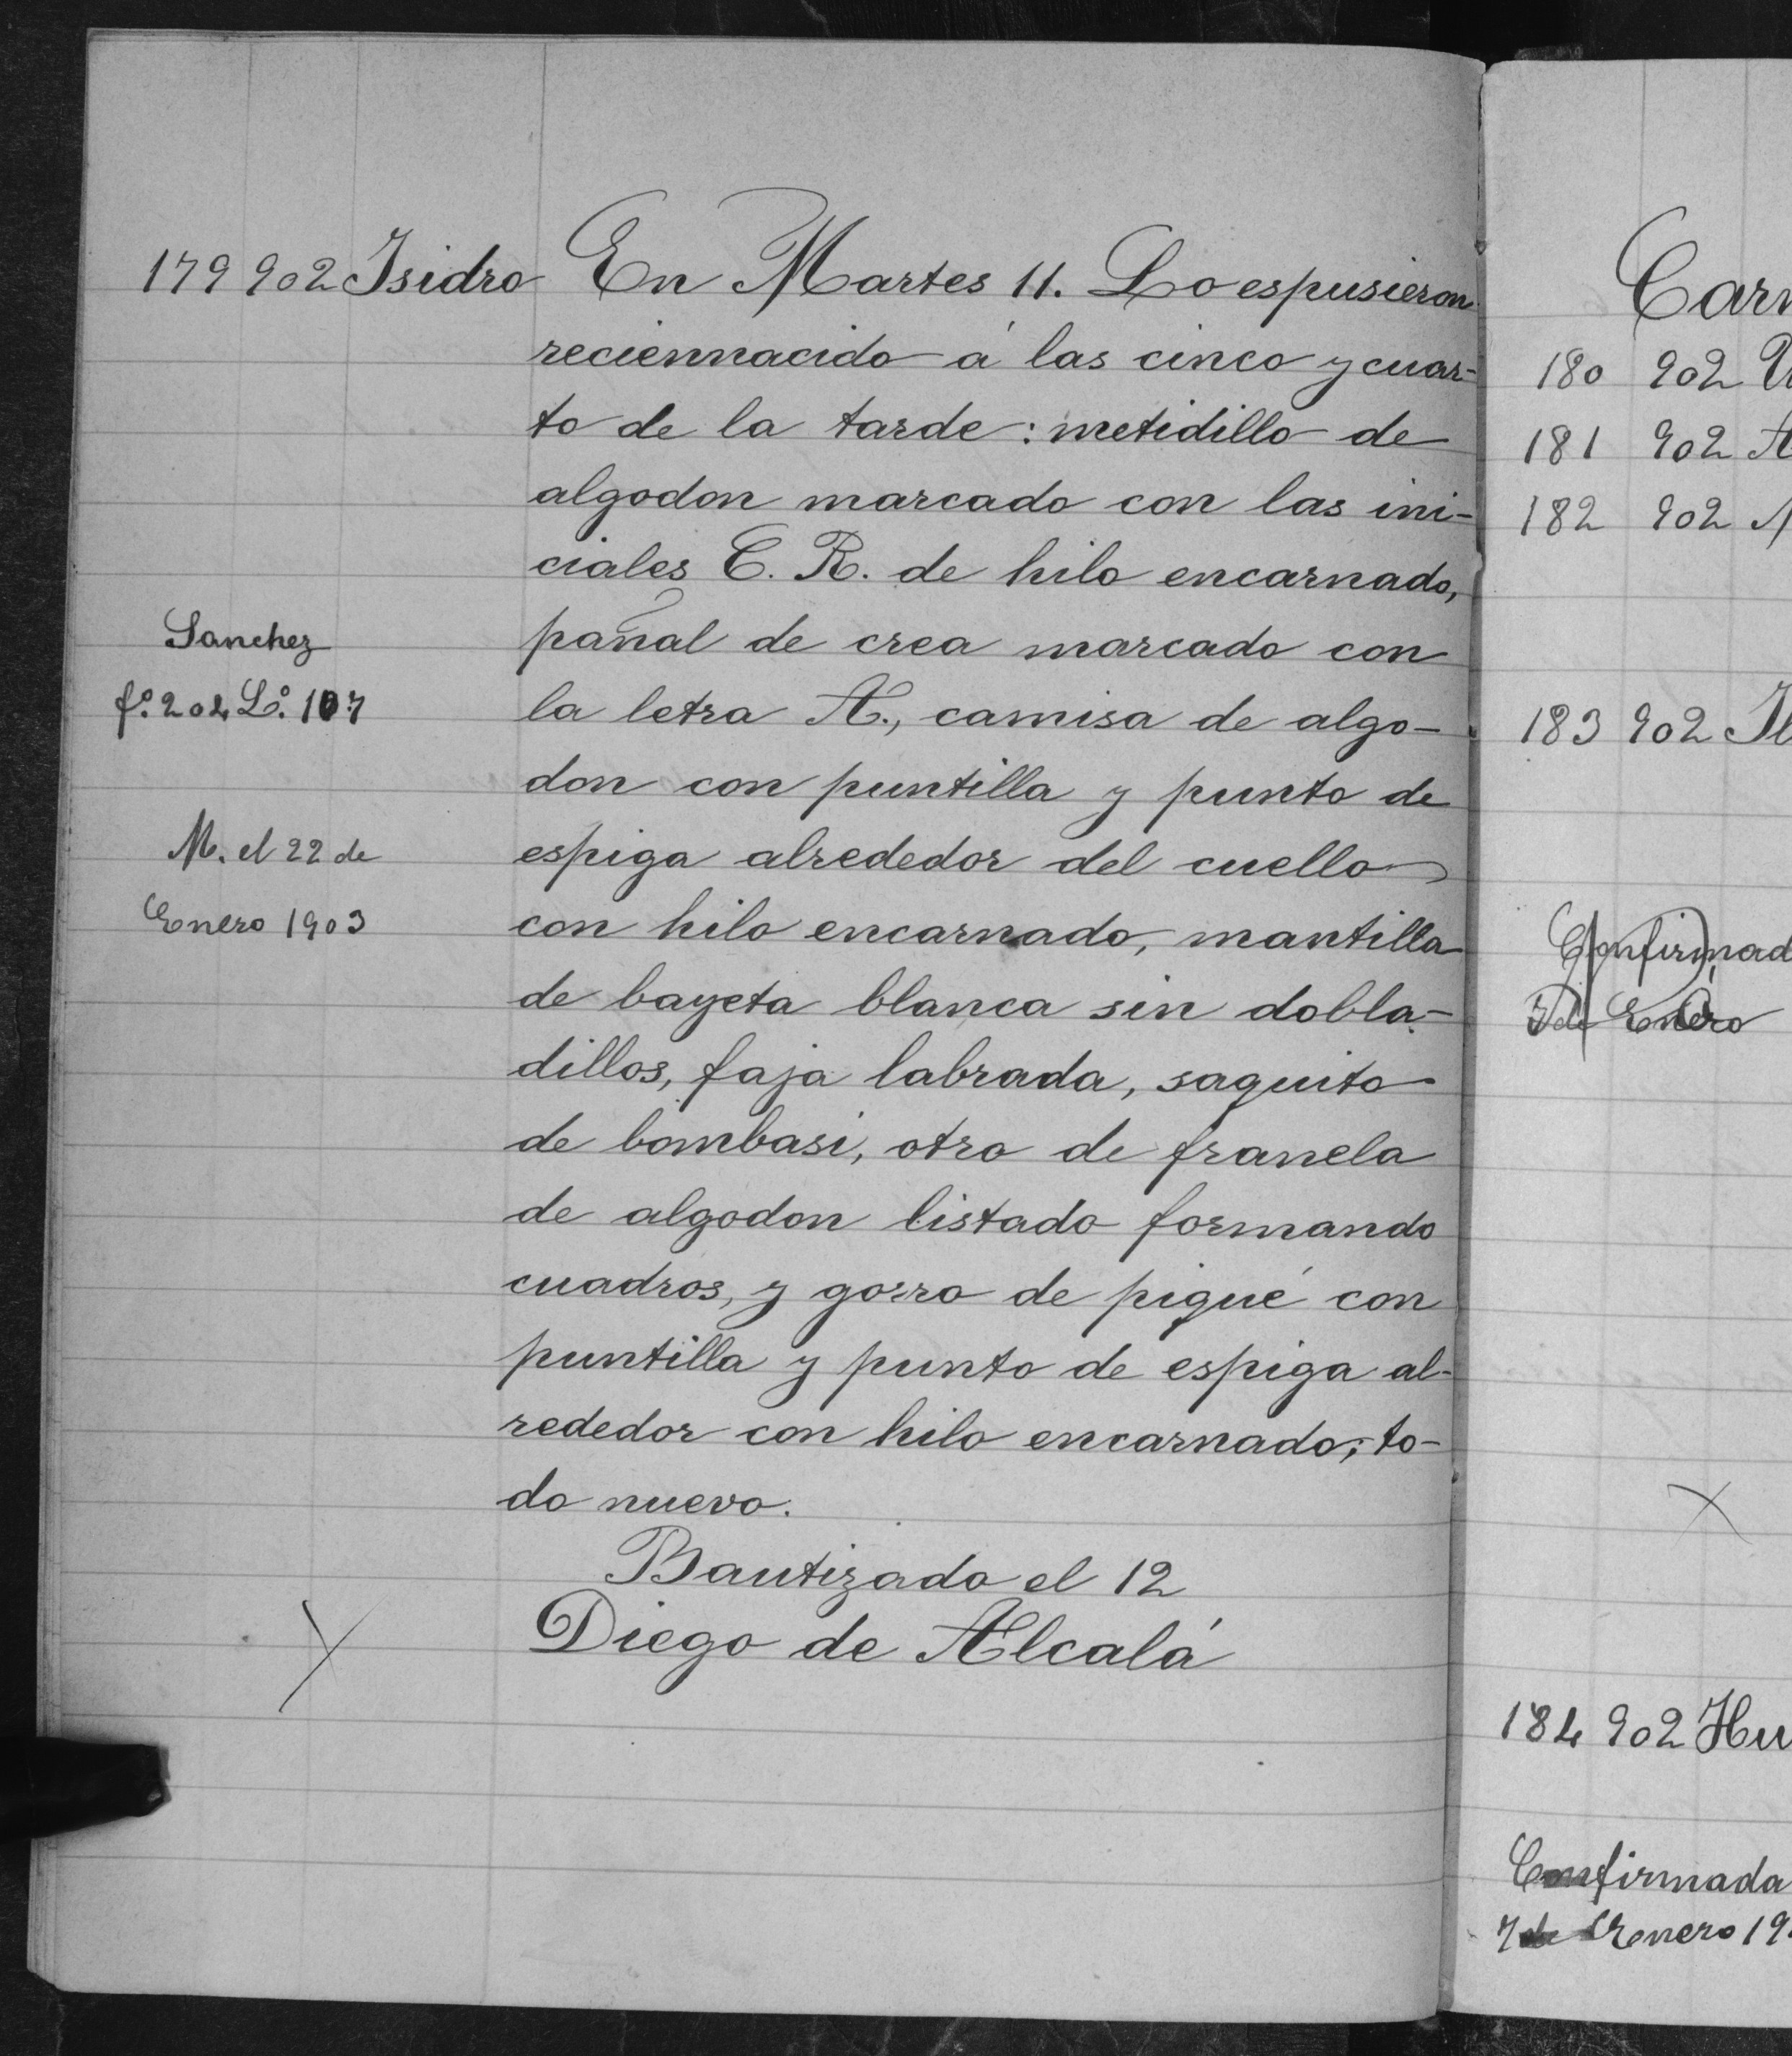 179 902 Isidro En Martes 11. Lo espusieron
reciennacido á las cinco y cuar-
to de la tarde: metidillo de
algodon marcado con las ini-
ciales C. R. de hilo encarnado,
pañal de crea marcado con
la letra A., camisa de algo-
don con puntilla y punto de
espiga alrededor del cuello
con hilo encarnado, mantilla
de bayeta blanca sin dobla-
dillos, faja labrada, saquito
de bombasi, otro de franela
de algodon listado formando
cuadros, y gorro de piqué con
puntilla y punto de espiga al-
rededor con hilo encarnado; to-
do nuevo.
Bautizado el 12
Diego de Alcalá
Sanchez
fº. 204 Lº. 107
M. el 22 de
Enero 1903
180 902
181 902
182 902
183 902
7 de Enero
184 902 Hu
Confirmada
7 de Enero 19